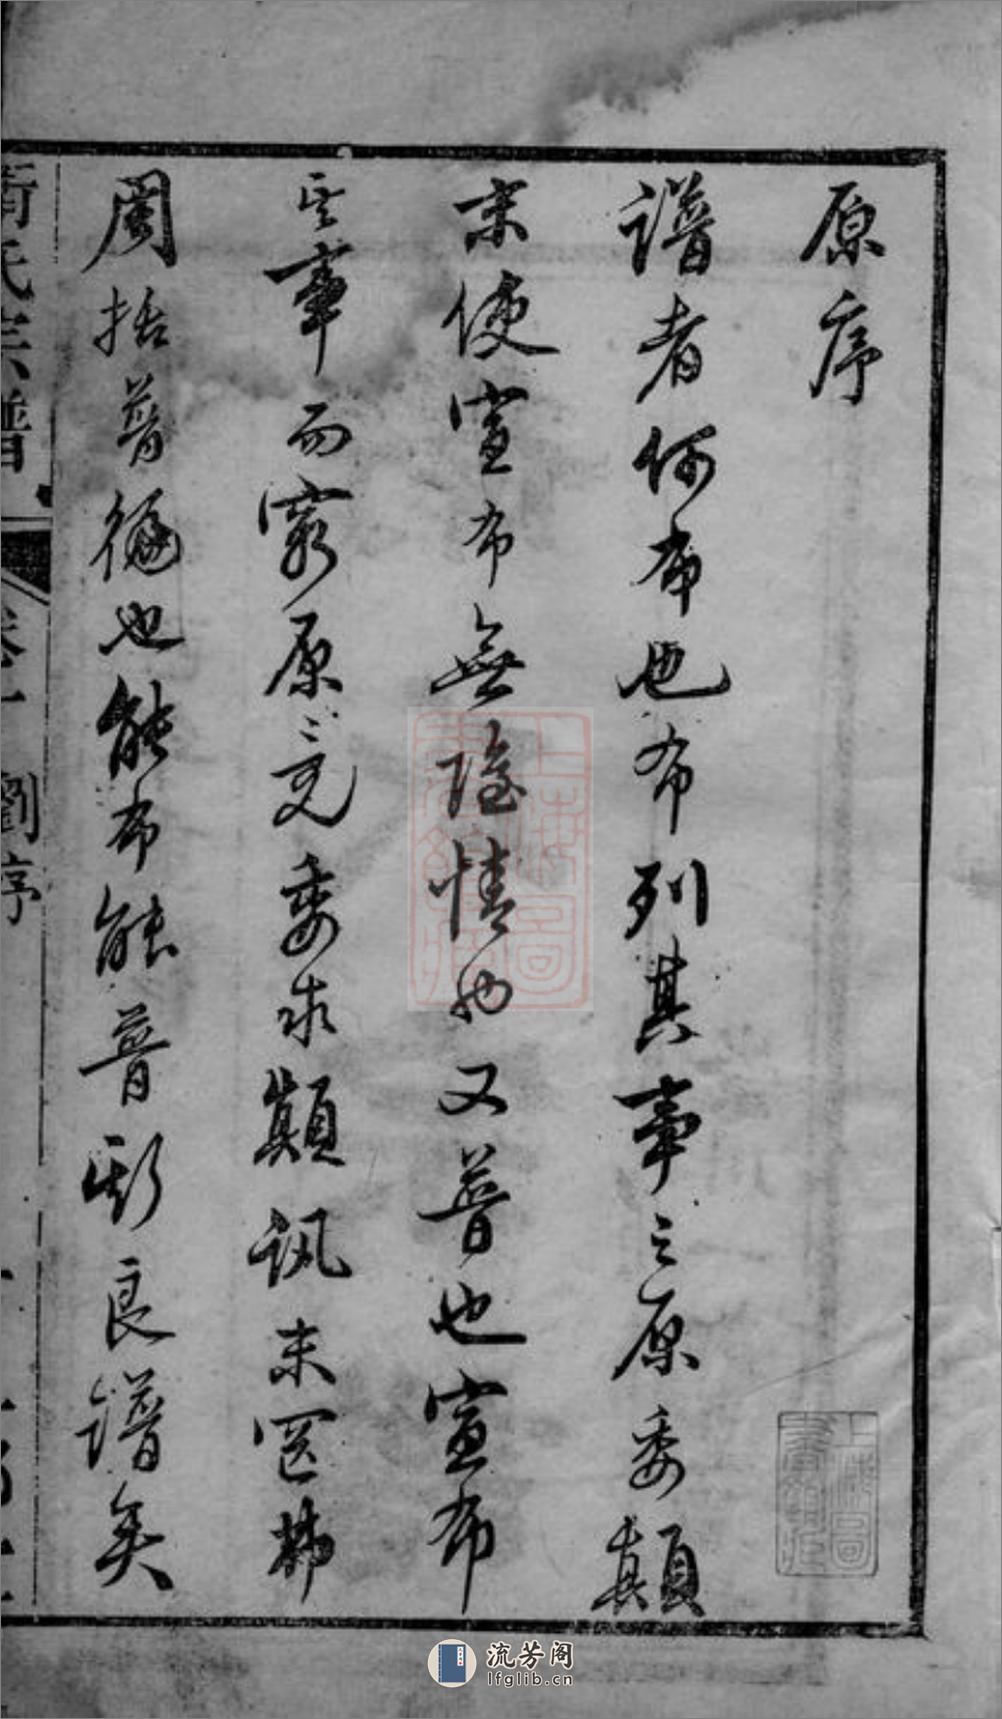 原序
譜者何布也布列其事之原委顛
末使宣布無隐情也又普也宣布
其事而窮原〻竟委求顛訊末罔弗
周括普徧也能布能普斯良譜矣
衛氏宗譜
卷一
劉序
上海圖書館藏
上海圖書館藏
流芳阁
lfglib.cn